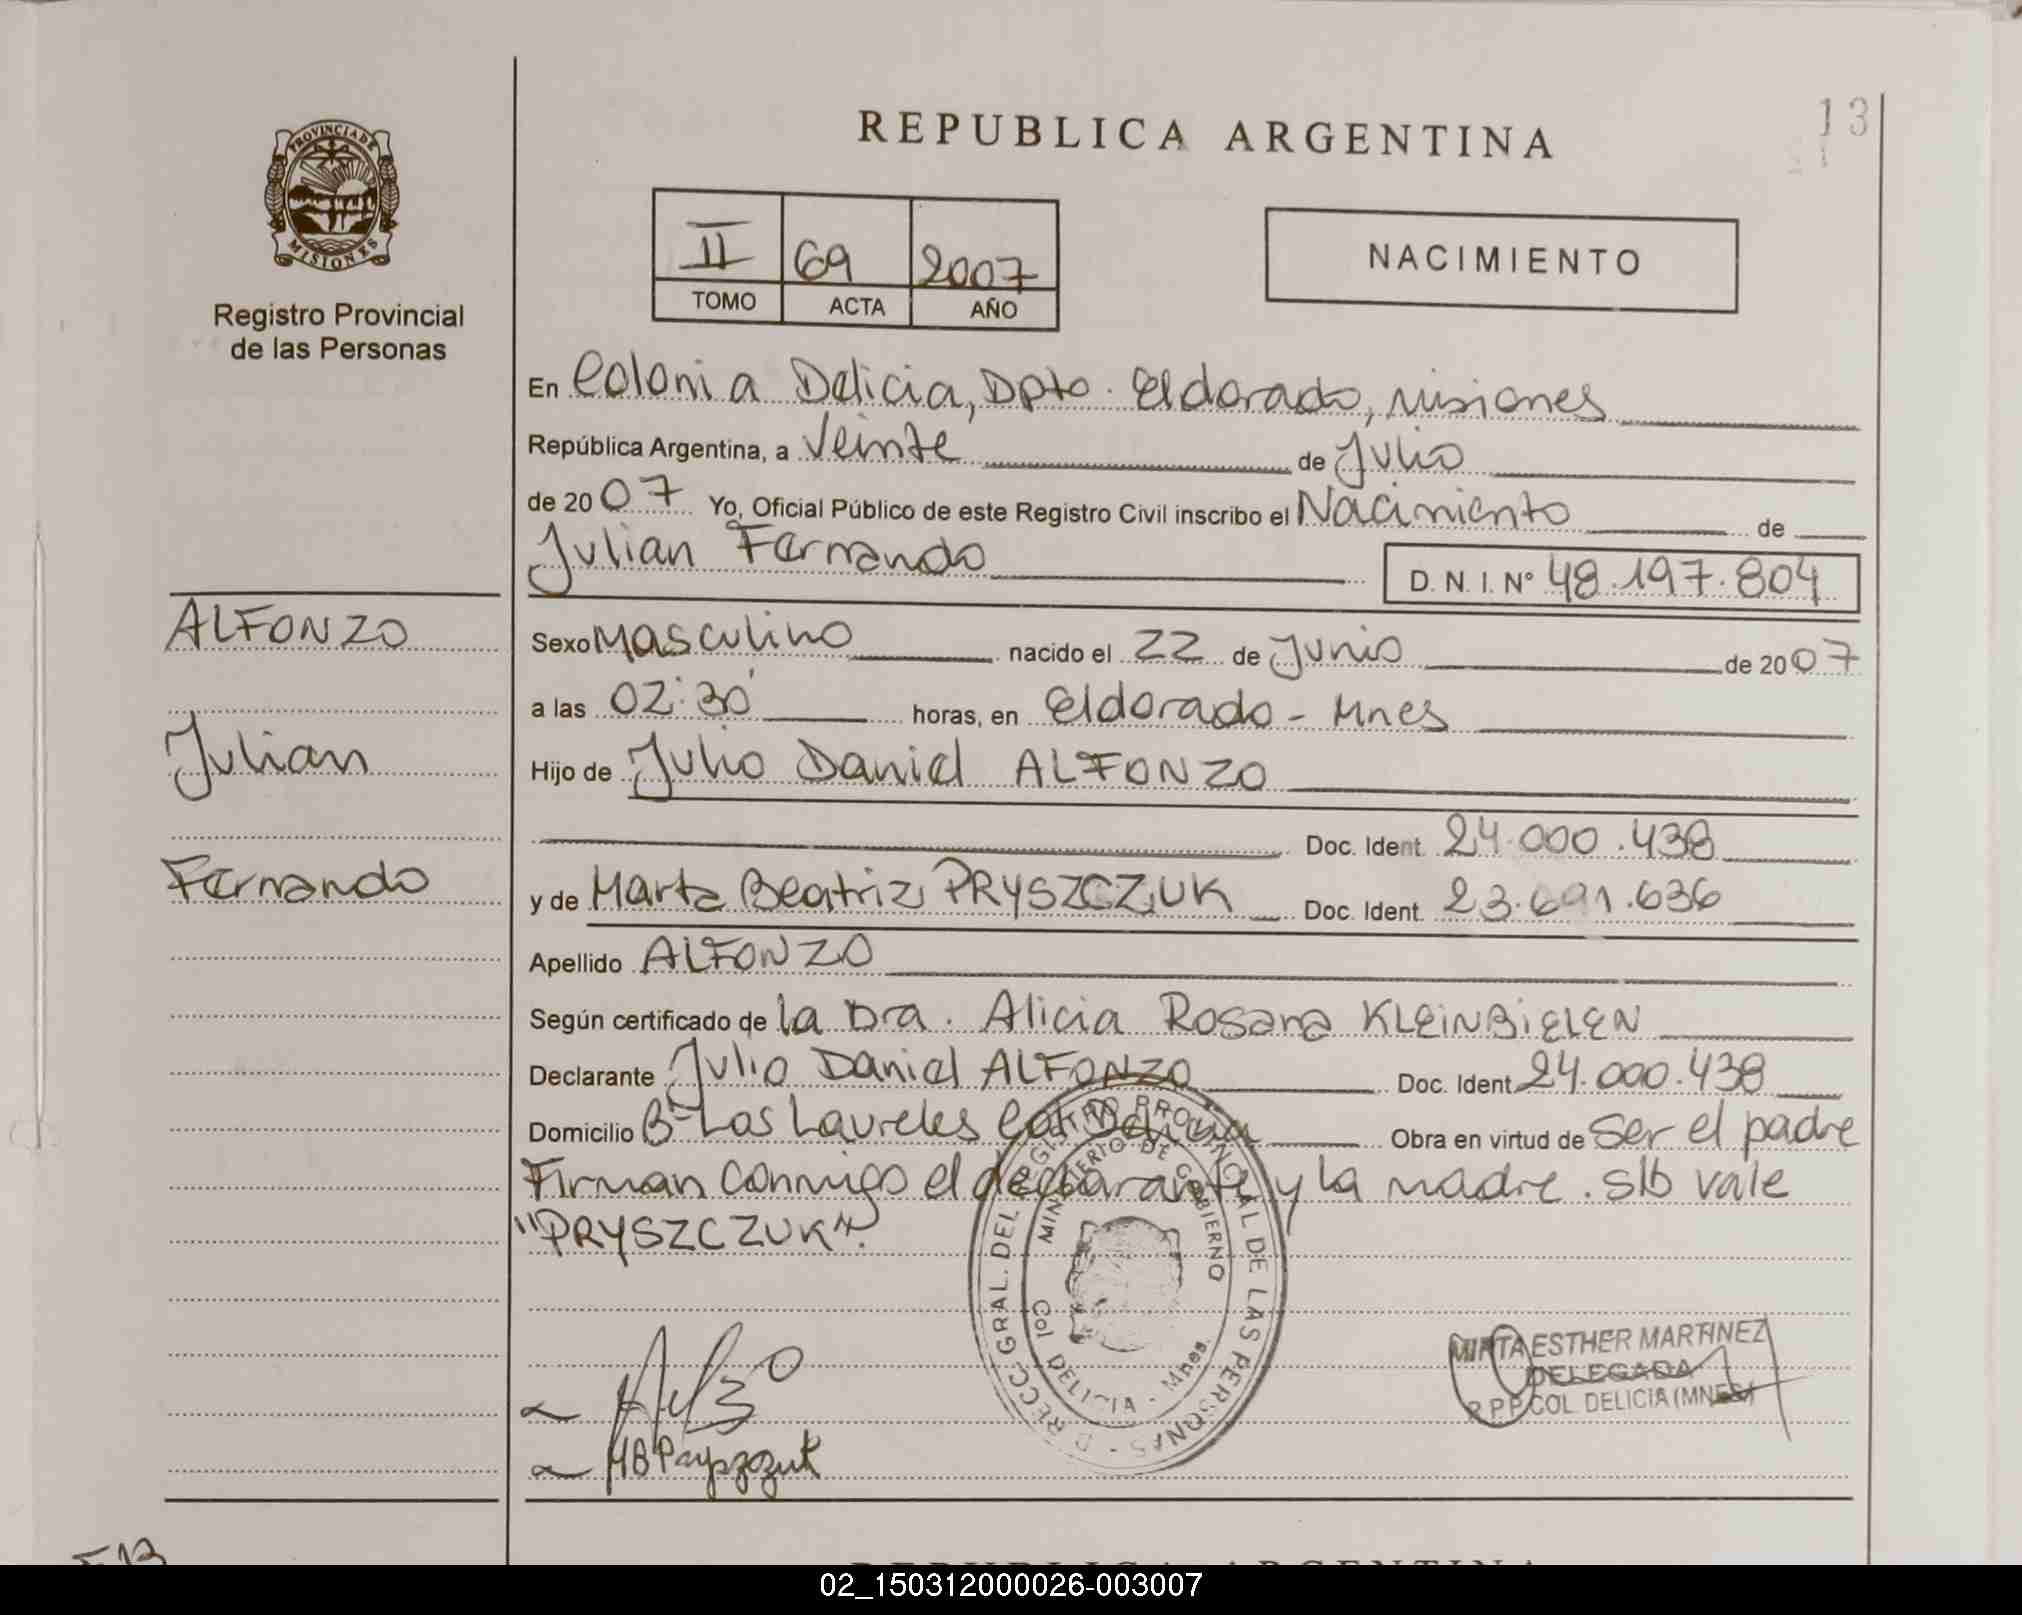 REPUBLICA ARGENTINA
13
PROVINCIA DE
MISIONES
Registro Provincial
de las Personas
II 69 2007
TOMO ACTA AÑO
NACIMIENTO
En Colonia Delicia, Dpto. Eldorado, Misiones
República Argentina, a Veinte de Julio
de 2007 Yo, Oficial Público de este Registro Civil inscribo el Nacimiento de
Julian Fernando D. N. I. Nº 48.197.804
ALFONZO
Julian
Fernando
Sexo Masculino nacido el 22 de Junio de 2007
a las 02:30' horas, en Eldorado - Mnes
Hijo de Julio Daniel ALFONZO
Doc. Ident. 24.000.438
y de Marta Beatriz PRYSZCZUK Doc. Ident. 23.691.636
Apellido ALFONZO
Según certificado de la Dra. Alicia Rosana KLEINBIELEN
Declarante Julio Daniel ALFONZO Doc. Ident. 24.000.438
Domicilio Bº Los Laureles Col. Delicia Obra en virtud de Ser el padre
Firman conmigo el declarante y la madre. s/b vale
"PRYSZCZUK".
DIRECC. GRAL. DEL REGISTRO PROVINCIAL DE LAS PERSONAS
MINISTERIO DE GOBIERNO
Col DELICIA - Mnes.
MIRTA ESTHER MARTINEZ
DELEGADA
R.P.P. COL. DELICIA (MNES)
MB Pryszczuk
F 13
REPUBLICA ARGENTINA
02_150312000026-003007